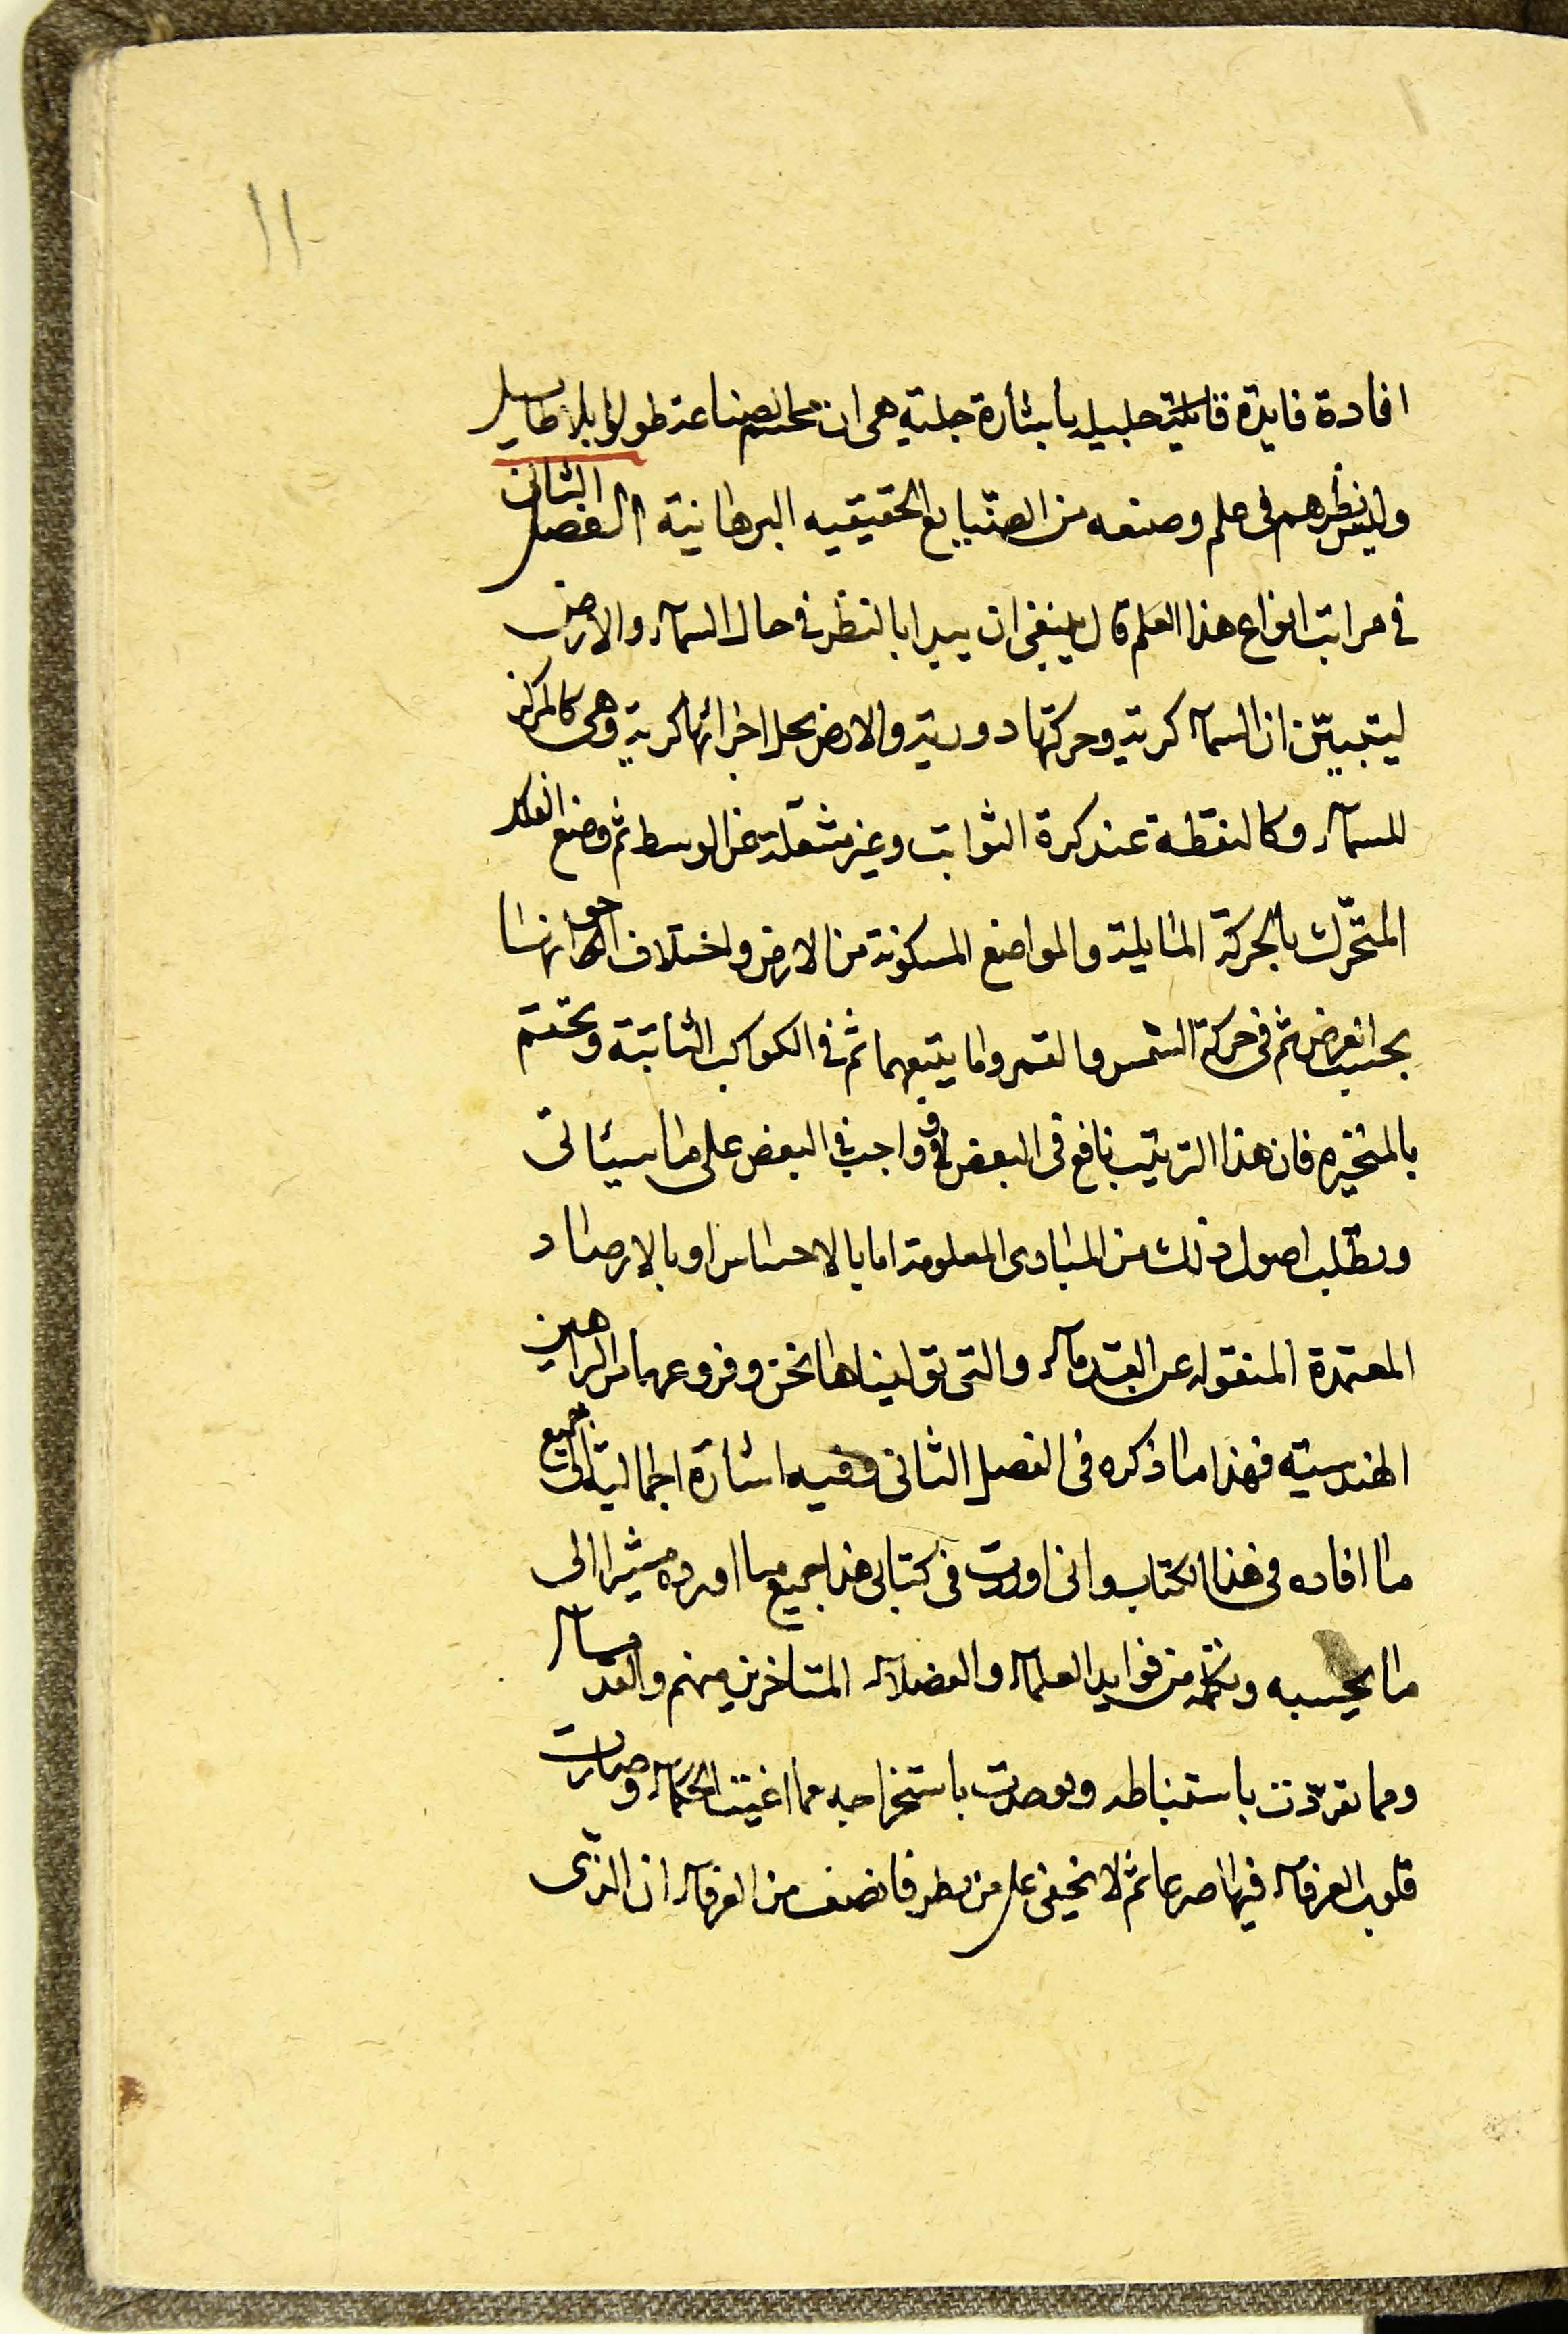 ١١
افادة فايدة قابلية جليله بابشارة جلية هى ان محتم لصناعة طولا بلا طايل
وليس نظرهم فى علم وصنعه من الصنايع الحقيقيه البرهانية الفصل الثانى
فى مراتب انواع هذا العلم قال ينبغى ان يبدا بالنظر فى حال السمآء والارض
ليتبيّن ان السمآء كرية وحركتها دورية والارض بكل اجزائها كرية وهى كالمركز
للسمآء وكالنقطة عند كرة الثوابت وغير منتقلة عن الوسط ثم وضع الفلك
المتحرّك بالحركة المايلة والمواضع المسكونة من الارض واختلاف احوالها
بحسب العرض ثم فى حركة الشمس والقمر وما يتبعهما ثم فى الكواكب الثابتة ويختتم
بالمتحيره فان هذا الترتيب نافع فى البعض وواجب فى البعض على ما سيئاتى
ويطلب اصول ذلك من المبادى المعلومة اما بالاحساس او بالارصاد
المعتمدة المنقوله عن القدمآء والتى تولیناها نحن وفروعها من البراهين
الهندسيّة فهذا ما ذكره فى الفصل الثانى وفيه اشارة اجمالية الى جميع
ما افاده فى هذا الكتاب وانى اوردت فى كتابى هذا جميع ما اورده مشيرا الى
ما يحسبه وتتمة من فوايد العلمآء والفضلآء المتاخرين منهم والقدمآء
ومما تفرّدت باستنباطه وتوحدت باستخراجه مما اعيت الحكمآء وصارت
قلوب العرفآء فيها صرعا ثم لا يخفى على من نظر فانصف من العرفآء ان الذّى